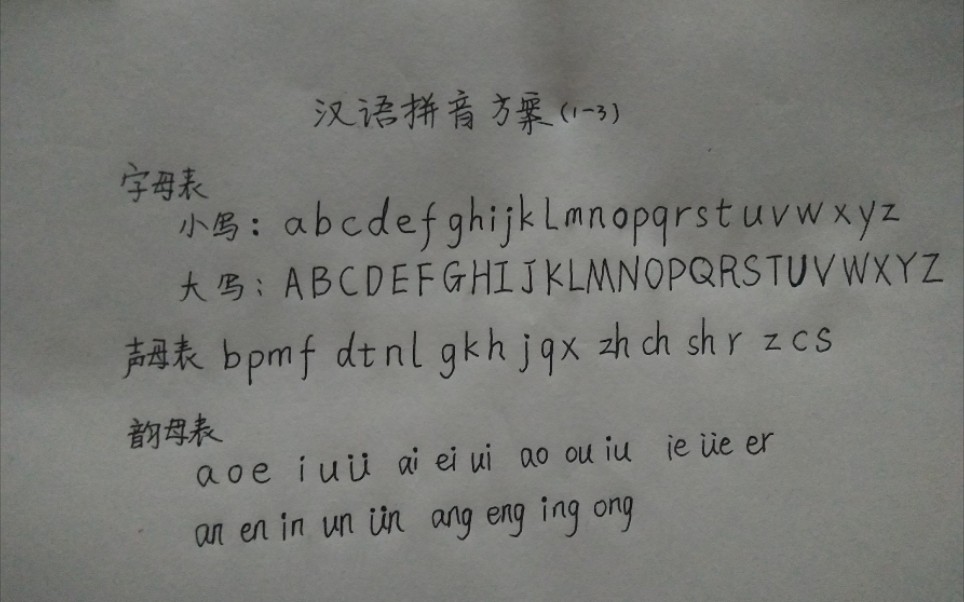 汉语拼音方案(1-3)
字母表
小写：a b c d e f g h i j k l m n o p q r s t u v w x y z
大写：A B C D E F G H I J K L M N O P Q R S T U V W X Y Z
声母表 b p m f d t n l g k h j q x zh ch sh r z c s
韵母表
a o e i u ü ai ei ui ao ou iu ie üe er
an en in un ün ang eng ing ong